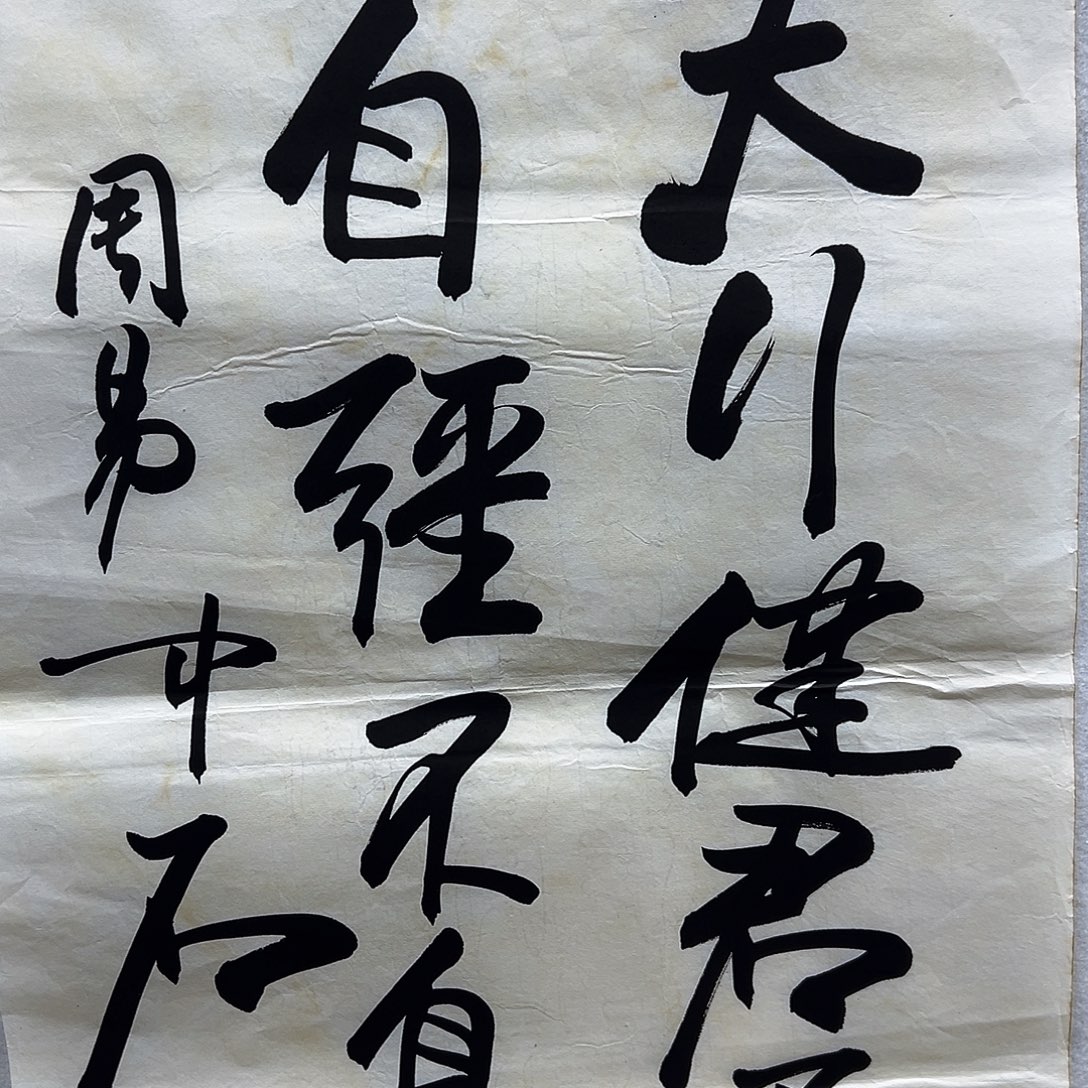 天行健君
自彊不息
周易中石